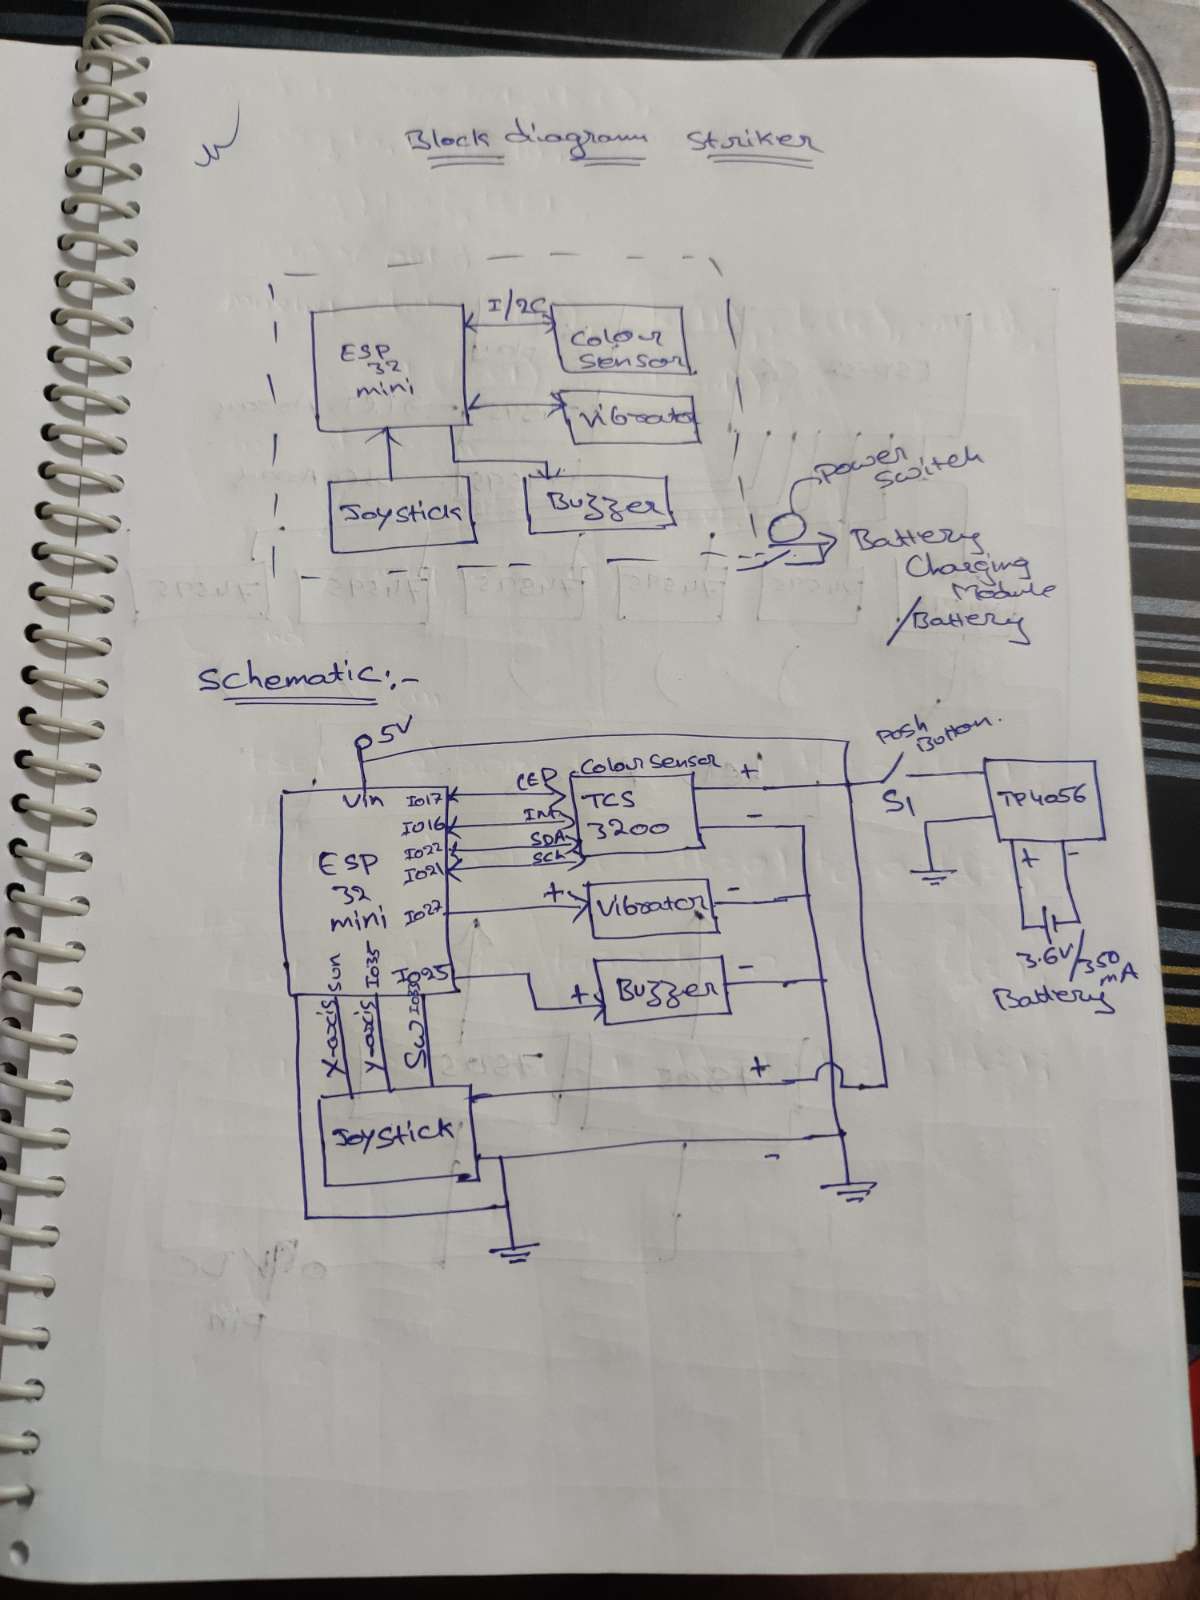 Block diagram Striker
I/2C
ESP
32
mini
Colour
Sensor
Vibrator
Joystick
Buzzer
Power
Switch
Battery
Charging
Module
/Battery
Schematic:-
5V
Push
Button.
Colour Sensor
Vin
IO17
IO16
IO22
IO21
IO27
IO25
ESP
32
mini
INT
SDA
TCS
3200
+
-
S1
TP4056
+ -
3.6V/350
mA
Battery
+
Vibrator
-
+
Buzzer
-
IO35
X-axis
Y-axis
SW
Joystick
+
-